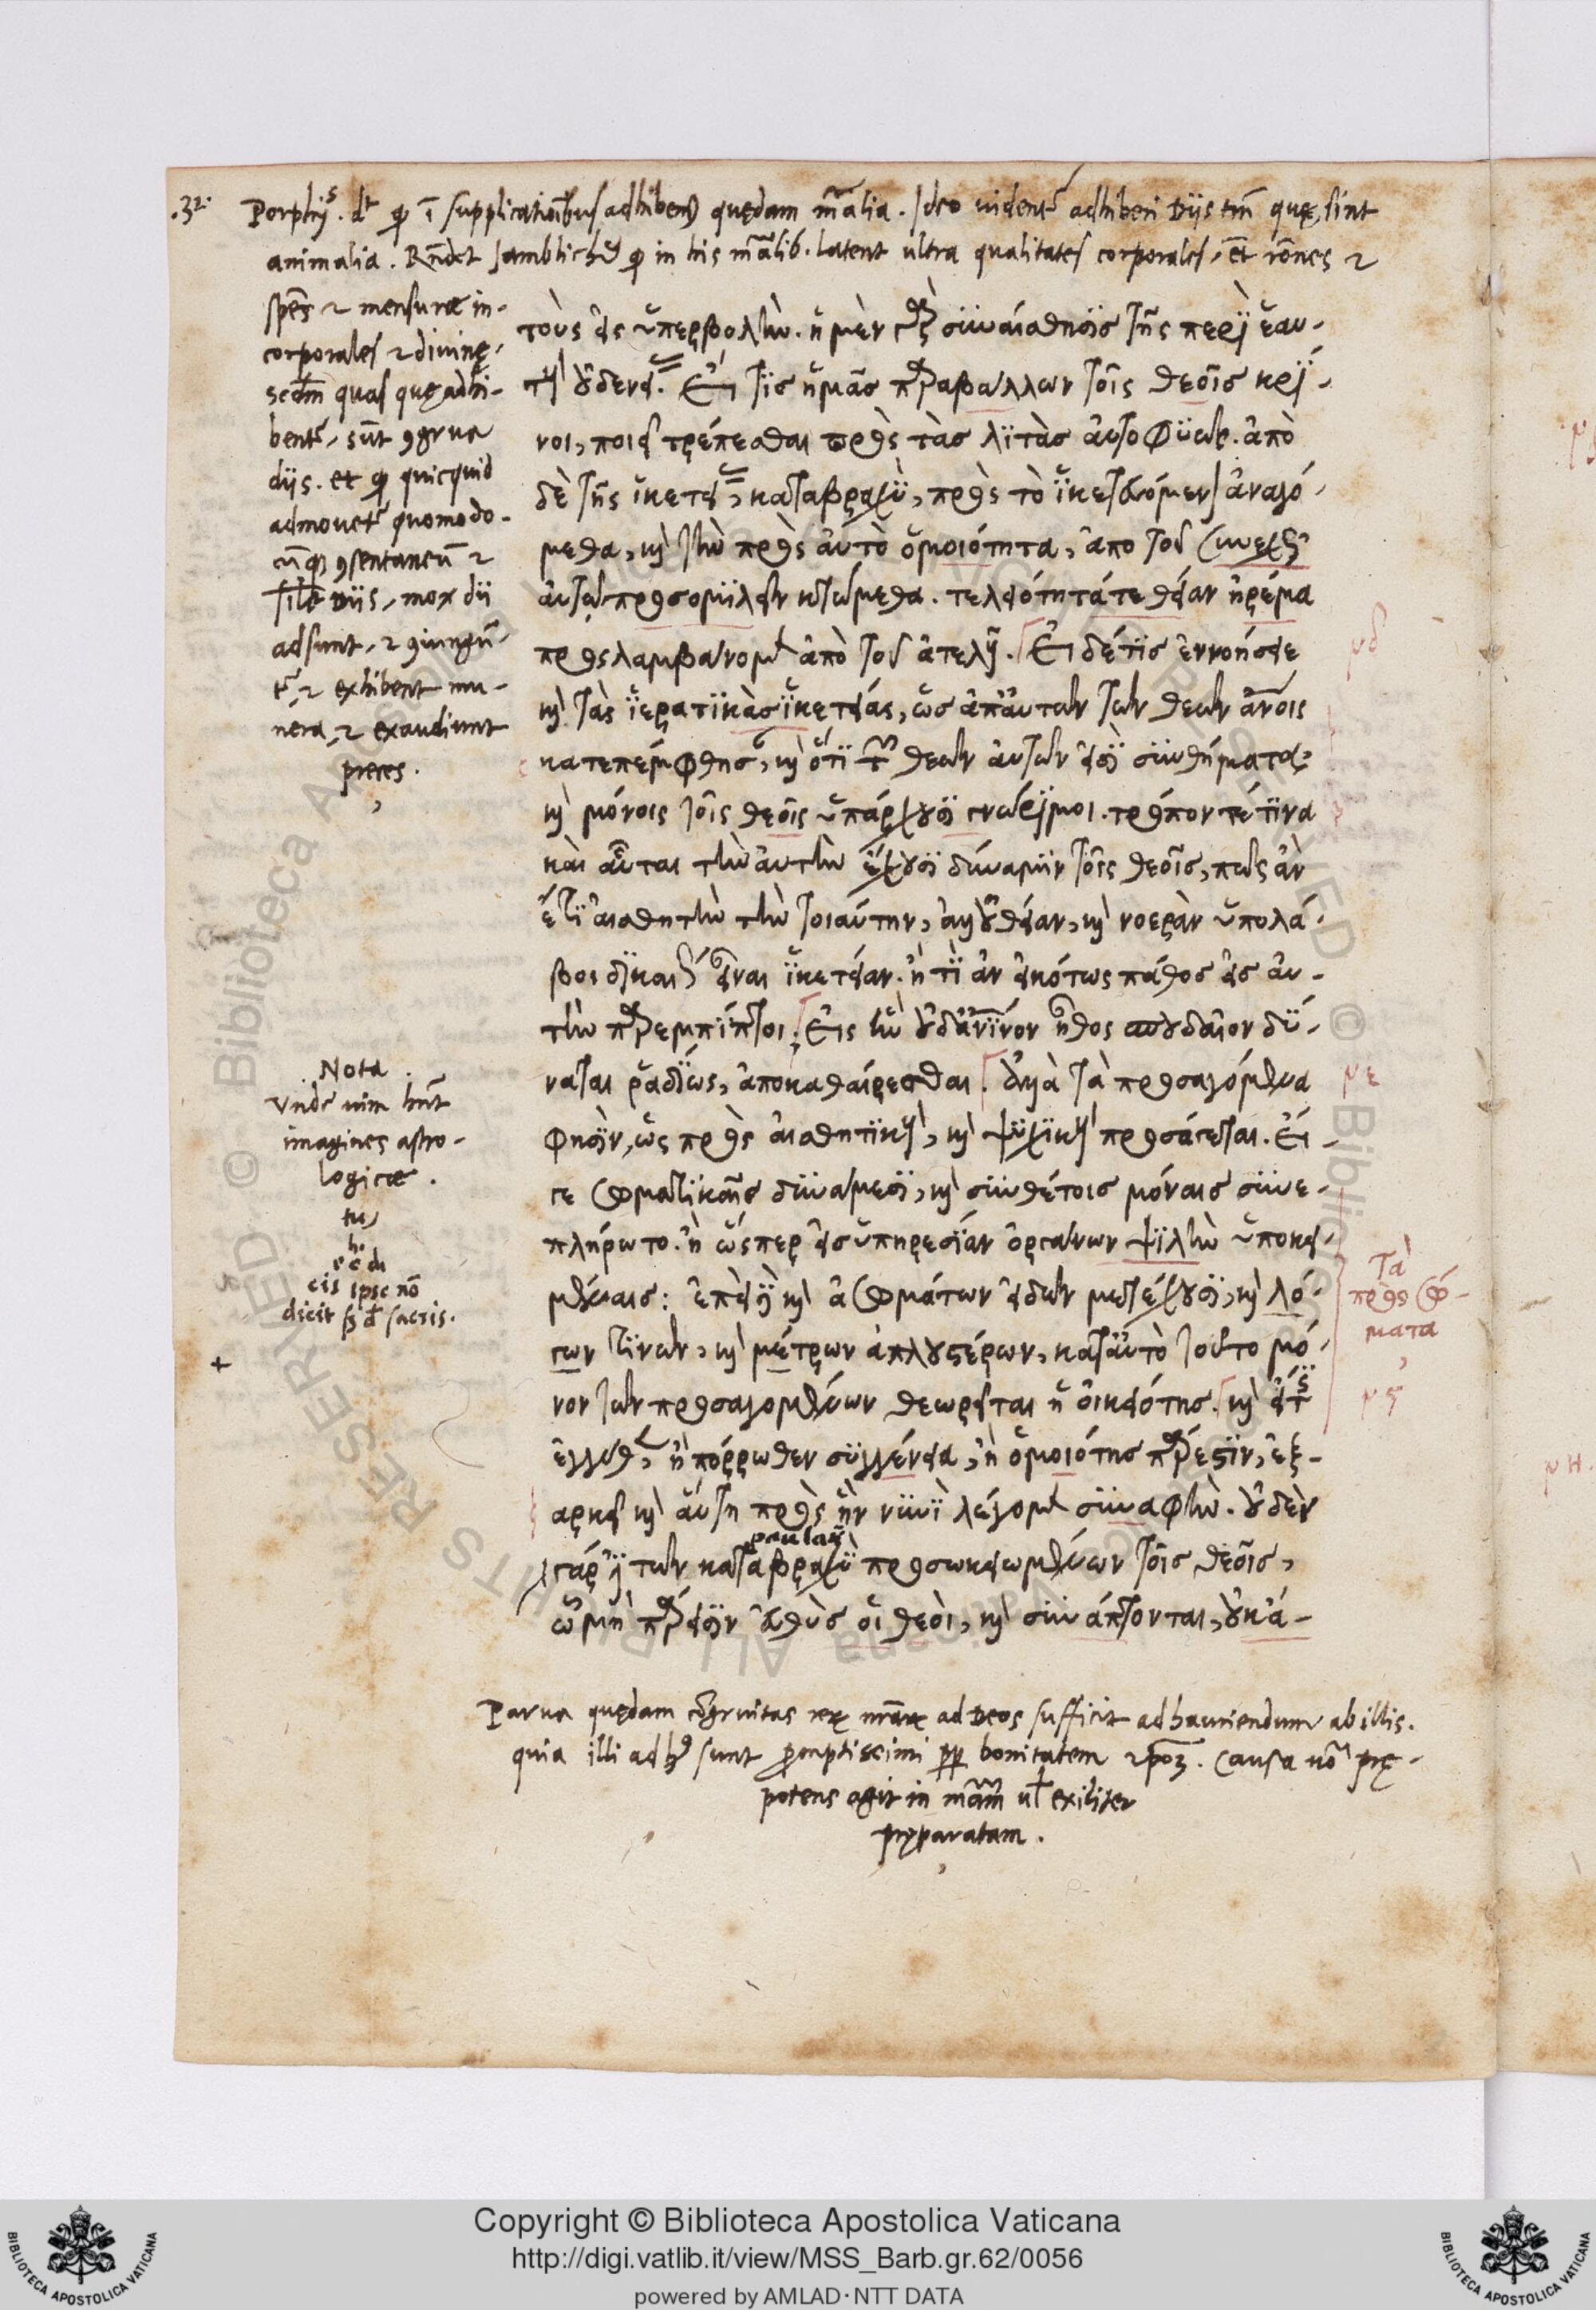 .32. Porphyꝰ. dr̄ q̄ ī supplicatiōibus adhibent᷑ quędam m̄alia. Ideo vident᷑ adhiberi Diis tm̄ quę sint
animalia. Rn̄det Iamblichꝰ q̄ in his m̄alib. latent ultra qualitates corporales, et rōnes &
spēs & mensuræ in-
corporales & divinę,
scdm̄ quas quę adhi-
bent᷑, sūt ꝯgrua
diis. et q̄ quicquid
admovet᷑ quomodo-
cūq ꝯsentaneū &
sile Diis, mox dii
adsunt, & ꝯiungū-
t᷑, & exhibent mu-
nera, & exaudiunt
preces.
τοὺς εἰς ὑπερβολὴν. ἡ μὲν γὰρ συναίσθησις τῆς περὶ ἑαυ-
τὴν οὐδενείας. Εἴ τις ἡμᾶς παραβάλλων τοῖς θεοῖς κρί-
νοι, ποιεῖ τρέπεσθαι πρὸς τὰς λιτὰς αὐτοφυῶς. ἀπὸ
δὲ τῆς ἱκετείας, καταβραχὺ, πρὸς τὸ ἱκετευόμενον ἀναγό-
μεθα, καὶ τὴν πρὸς αὐτὸ ὁμοιότητα, ἀπο τοῦ συνεχῶς
αὐτῷ προσομιλεῖν κτώμεθα. τελειότητά τε θείαν ἠρέμα
προσλαμβάνομεν ἀπὸ τοῦ ἀτελοῦς. Εἰ δέ τις ἐννοήσειε
καὶ τὰς ἱερατικὰς ἱκετείας, ὡς ἀπ' αὐτῶν τῶν θεῶν ἀνοις
κατεπέμφθησαν, καὶ ὅτι τῶν θεῶν αὐτῶν εἰσὶ συνθήματα,
καὶ μόνοις τοῖς θεοῖς ὑπάρχουσι γνώριμοι. τρόπον τέ τινα
καὶ αὗται τὴν αὐτὴν ἔχουσι δύναμιν τοῖς θεοῖς, πῶς ἂν
ἔτι αἰσθητὴν τὴν τοιαύτην, ἀλλ' οὐ θείαν, καὶ νοερὰν ὑπολά-
βοι δικαίως εἶναι ἱκετείαν. ἢ τί ἂν εἰκότως πάθος εἰς αὐ-
τὴν παρεμπίπτοι; Εἰς ἣν οὐδ' ἀνινον ἦθος σπουδαῖον δύ-
ναται ῥαδίως, ἀποκαθαίρεσθαι. Ἀλλὰ τὰ προσαγόμενα
φησὶν, ὡς πρὸς αἰσθητικοὺς, καὶ ψυχικοὺς προσάγεται. Εἴ
γε σωματικαῖς δυνάμεσι, καὶ συνθέτοις μόναις συνε-
πλήρωτο. ἢ ὥσπερ εἰς ὑπηρεσίαν ὀργάνων ψιλὴν ὑποκει-
μέναις: ἐπεὶ δὲ καὶ ἀσωμάτων εἰδῶν μετέχουσι, καὶ λό-
γων τινῶν, καὶ μέτρων ἁπλουστέρων, κατ' αὐτὸ τοῦτο μό-
νον τῶν προσαγομένων θεωρεῖται ἡ οἰκειότης. καὶ εἴ τις
ἐγγύθεν, ἢ πόρρωθεν συγγένεια, ἢ ὁμοιότης πάρεστιν, ἐξ-
αρκεῖ καὶ αὕτη πρὸς ἣν νυνὶ λέγομεν συναφὴν. οὐδὲν
γάρ ἐστι τῶν καταβραχὺ προσοικειωμένων τοῖς θεοῖς,
ὧ μὴ πάρεισιν εὐθὺς οἱ θεοὶ, καὶ συνάπτονται, οὐκ ἀ-
Nota
Vnde vim hn̄t
imagines astro-
logicæ.
eis ipse nō
dicit
sacris.
+
Τὰ
πρὸς σώ-
ματα
μδ
με
μς
μη.
Parva quędam cōgruitas reꝝ nr̄aꝝ ad Deos sufficit ad hauriendum ab illis.
quia illi ad hꝰ sunt promptissimi pp̄ bonitatem &
Causa nō prę-
potens agit in mām vl' exiliter
pręparatam.
Copyright © Biblioteca Apostolica Vaticana
http://digi.vatlib.it/view/MSS_Barb.gr.62/0056
powered by AMLAD · NTT DATA
BIBLIOTECA APOSTOLICA VATICANA
BIBLIOTECA APOSTOLICA VATICANA